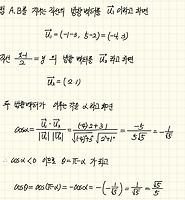 점 A, B를 지나는 직선의 방향벡터를 u₁ 이라고 하면
u₁ = (-1-3, 5-2) = (-4, 3)
직선 (x-1)/2 = y 의 방향벡터를 u₂ 라고 하면
u₂ = (2, 1)
두 방향벡터가 이루는 각을 α라고 하면
cosα = (u₁·u₂)/(|u₁||u₂|) = ((-4)·2+3·1)/(√((-4)²+3²) √(2²+1²)) = -5/(5√5) = -1/√5
∴ cosα < 0 이므로 θ = π-α 가 되고
cosθ = cos(π-α) = -cosα = -(-1/√5) = 1/√5 = √5/5